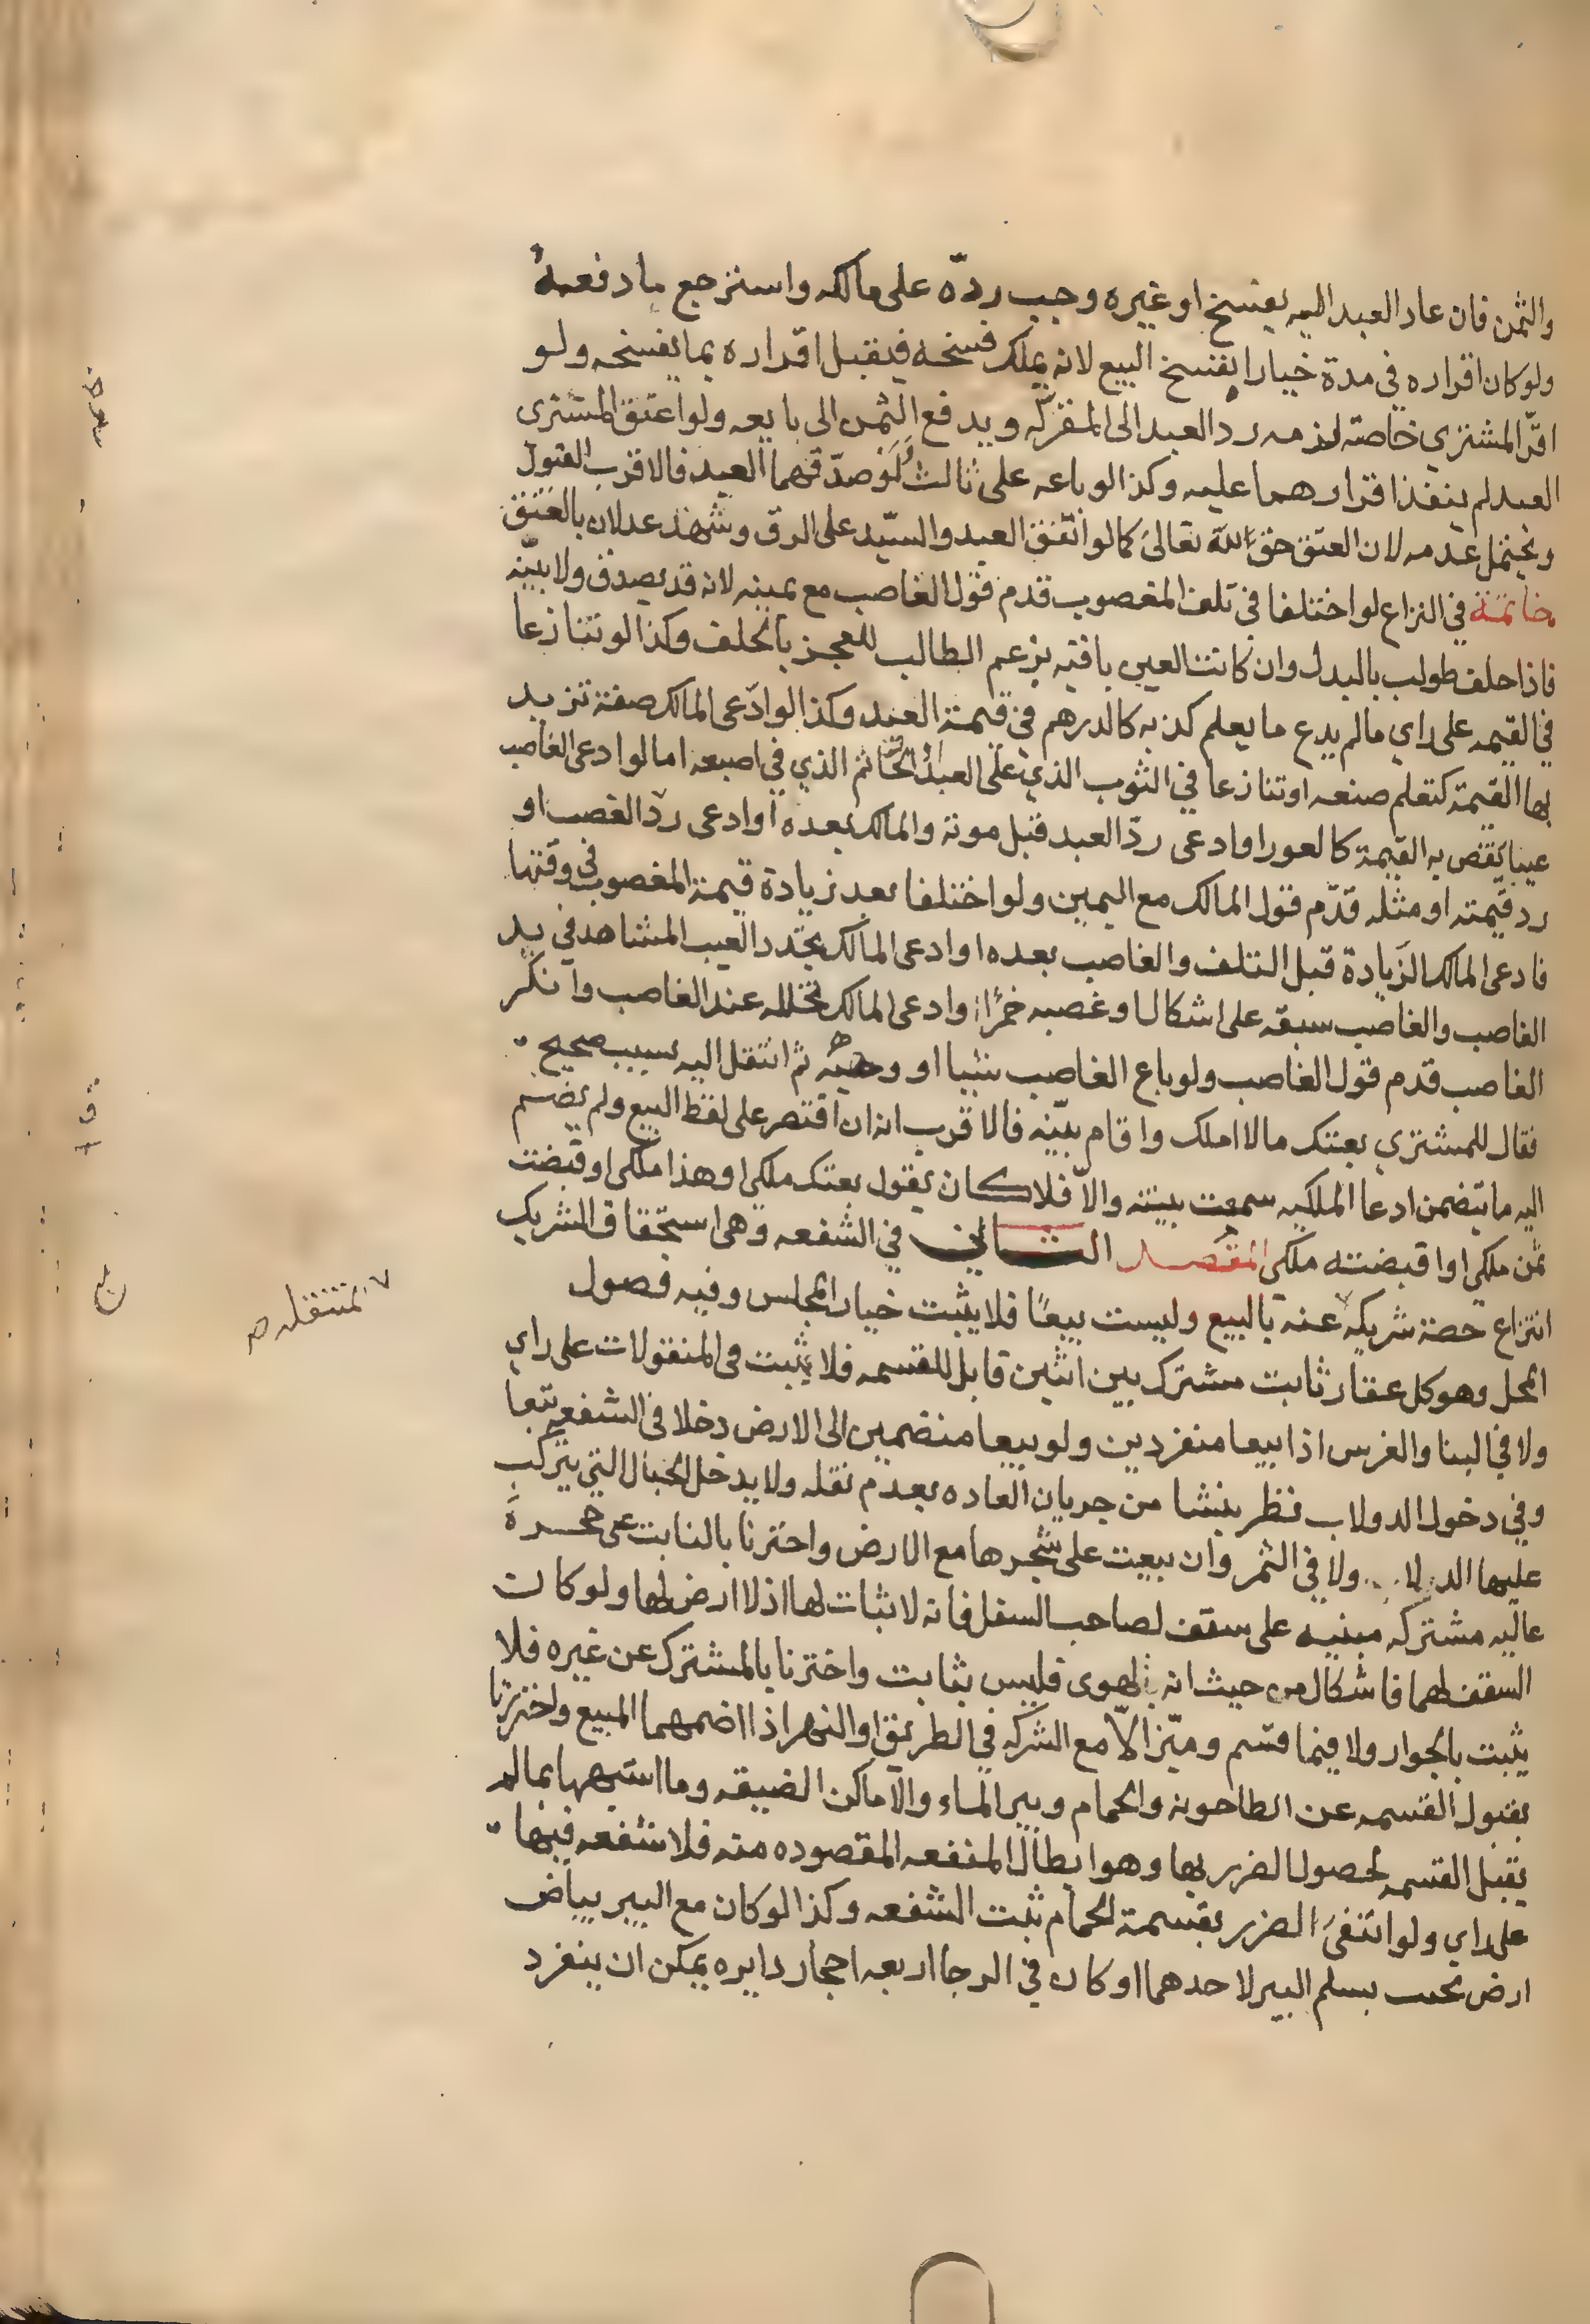 والثمن فان عاد العبد اليه بفسخ او غيره وجب ردّه على مالكه واسترجع ما دفعه
ولو كان اقراره في مدة خيار انفسخ البيع لانه يملك فسخه فيقبل اقراره بما يفسخه ولو
اقرّ المشتري خاصة لزمه رد العبد الى المقرّ له ويدفع الثمن الى بايعه ولو اعتق المشترى
العبد لم ينفذ اقرارهما عليه وكذا لو باعه على ثالث ولو صدّقهما العبد فالاقرب القبول
ويحتمل عدمه لان العتق حق الله تعالى كما لو اتفق العبد والسيّد على الرق وشهد عدلان بالعتق
خاتمة في النزاع لو اختلفا في تلف المغصوب قدم قول الغاصب مع يمينه لانه قد يصدق ولا بيّنه
فاذا حلف طولب بالبدل وان كانت العين باقيه بزعم الطالب للعجز بالحلف وكذا لو تنازعا
في القيمه على راي ما لم يدع ما يعلم كذبه كالدرهم في قيمة العبد وكذا لو ادّعى المالك صفة تزيد
بها القيمة كتعلم صنعه او تنازعا في الثوب الذي على العبد او الخاتم الذي في اصبعه اما لو ادعى الغاصب
عيبا ينقص به القيمة كالعور او ادعى ردّ العبد قبل موته والمالك بعده او ادعى ردّ الغصب او
رد قيمته او مثله قدّم قول المالك مع اليمين ولو اختلفا بعد زيادة قيمة المغصوب في وقتها
فادعى المالك الزيادة قبل التلف والغاصب بعده او ادعى المالك تجدد العيب المشاهد في يد
الغاصب والغاصب سبقه على اشكال او غصبه خمرًا وادعى المالك تخلله عند الغاصب وانكر
الغاصب قدم قول الغاصب ولو باع الغاصب شيئا او وهبه ثم انتقل اليه بسبب صحيح
فقال للمشتري بعتك ما لا املك واقام بيّنه فالاقرب انه ان اقتصر على لفظ البيع ولم يضم
اليه ما يتضمن ادعا الملكيه سمعت بينته والاّ فلا كان يقول بعتك ملكى او هذا ملكى او قبضت
ثمن ملكى او اقبضته ملكى المقصد الثاني في الشفعه وهي استحقاق الشريك
انتزاع حصة شريكه عنه بالبيع وليست بيعًا فلا يثبت خيار المجلس وفيه فصول
المحل وهو كل عقار ثابت مشترك بين اثنين قابل للقسمه فلا يثبت في المنقولات على راي
ولا في البنا والغرس اذا بيعا منفردين ولو بيعا منضمين الى الارض دخلا في الشفعه تبعا
وفي دخول الدولاب نظر ينشا من جريان العاده بعدم نقله ولا يدخل الحبال التي يتركب
عليها الدولاب ولا في الثمر وان بيعت على شجرها مع الارض واحترزنا بالثابت عن حجرة
عاليه مشتركه مبنيه على سقف لصاحب السفل فانه لا ثبات لها اذ لا ارض لها ولو كان
السقف لهما فاشكال من حيث انه في الهوى فليس بثابت واحترزنا بالمشترك عن غيره فلا
يثبت بالجوار ولا فيما قسّم وميّز الاّ مع الشركه في الطريق او النهر اذا اضمهما المبيع واحترزنا
بقبول القسمه عن الطاحونه والحمام وبير الماء والاماكن الضيقه وما اشبهها بما لم
يقبل القسمه لحصول الضرر بها وهو ابطال المنفعه المقصوده منه فلا شفعه فيها
على راي ولو انتفى الضرر بقسمة الحمام ثبت الشفعه وكذا لو كان مع البير بياض
ارض بحيث يسلم البير لاحدهما او كان في الرحا اربعه احجار دايره يمكن ان ينفرد
المنتقله